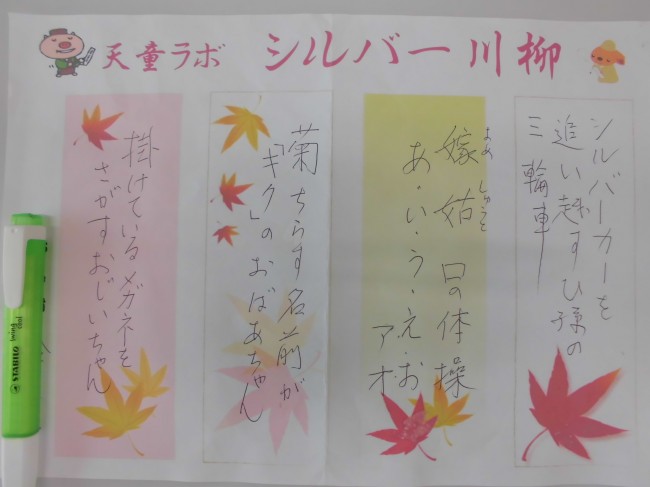 天童ラボ シルバー川柳
シルバーカーを
追い越すひ孫の
三輪車
嫁姑口の体操
よめ しゅうと
あ・い・う・え・お
アオ
菊ちらす名前が
「キク」のおばあちゃん
掛けているメガネを
さがすおじいちゃん
STABILO